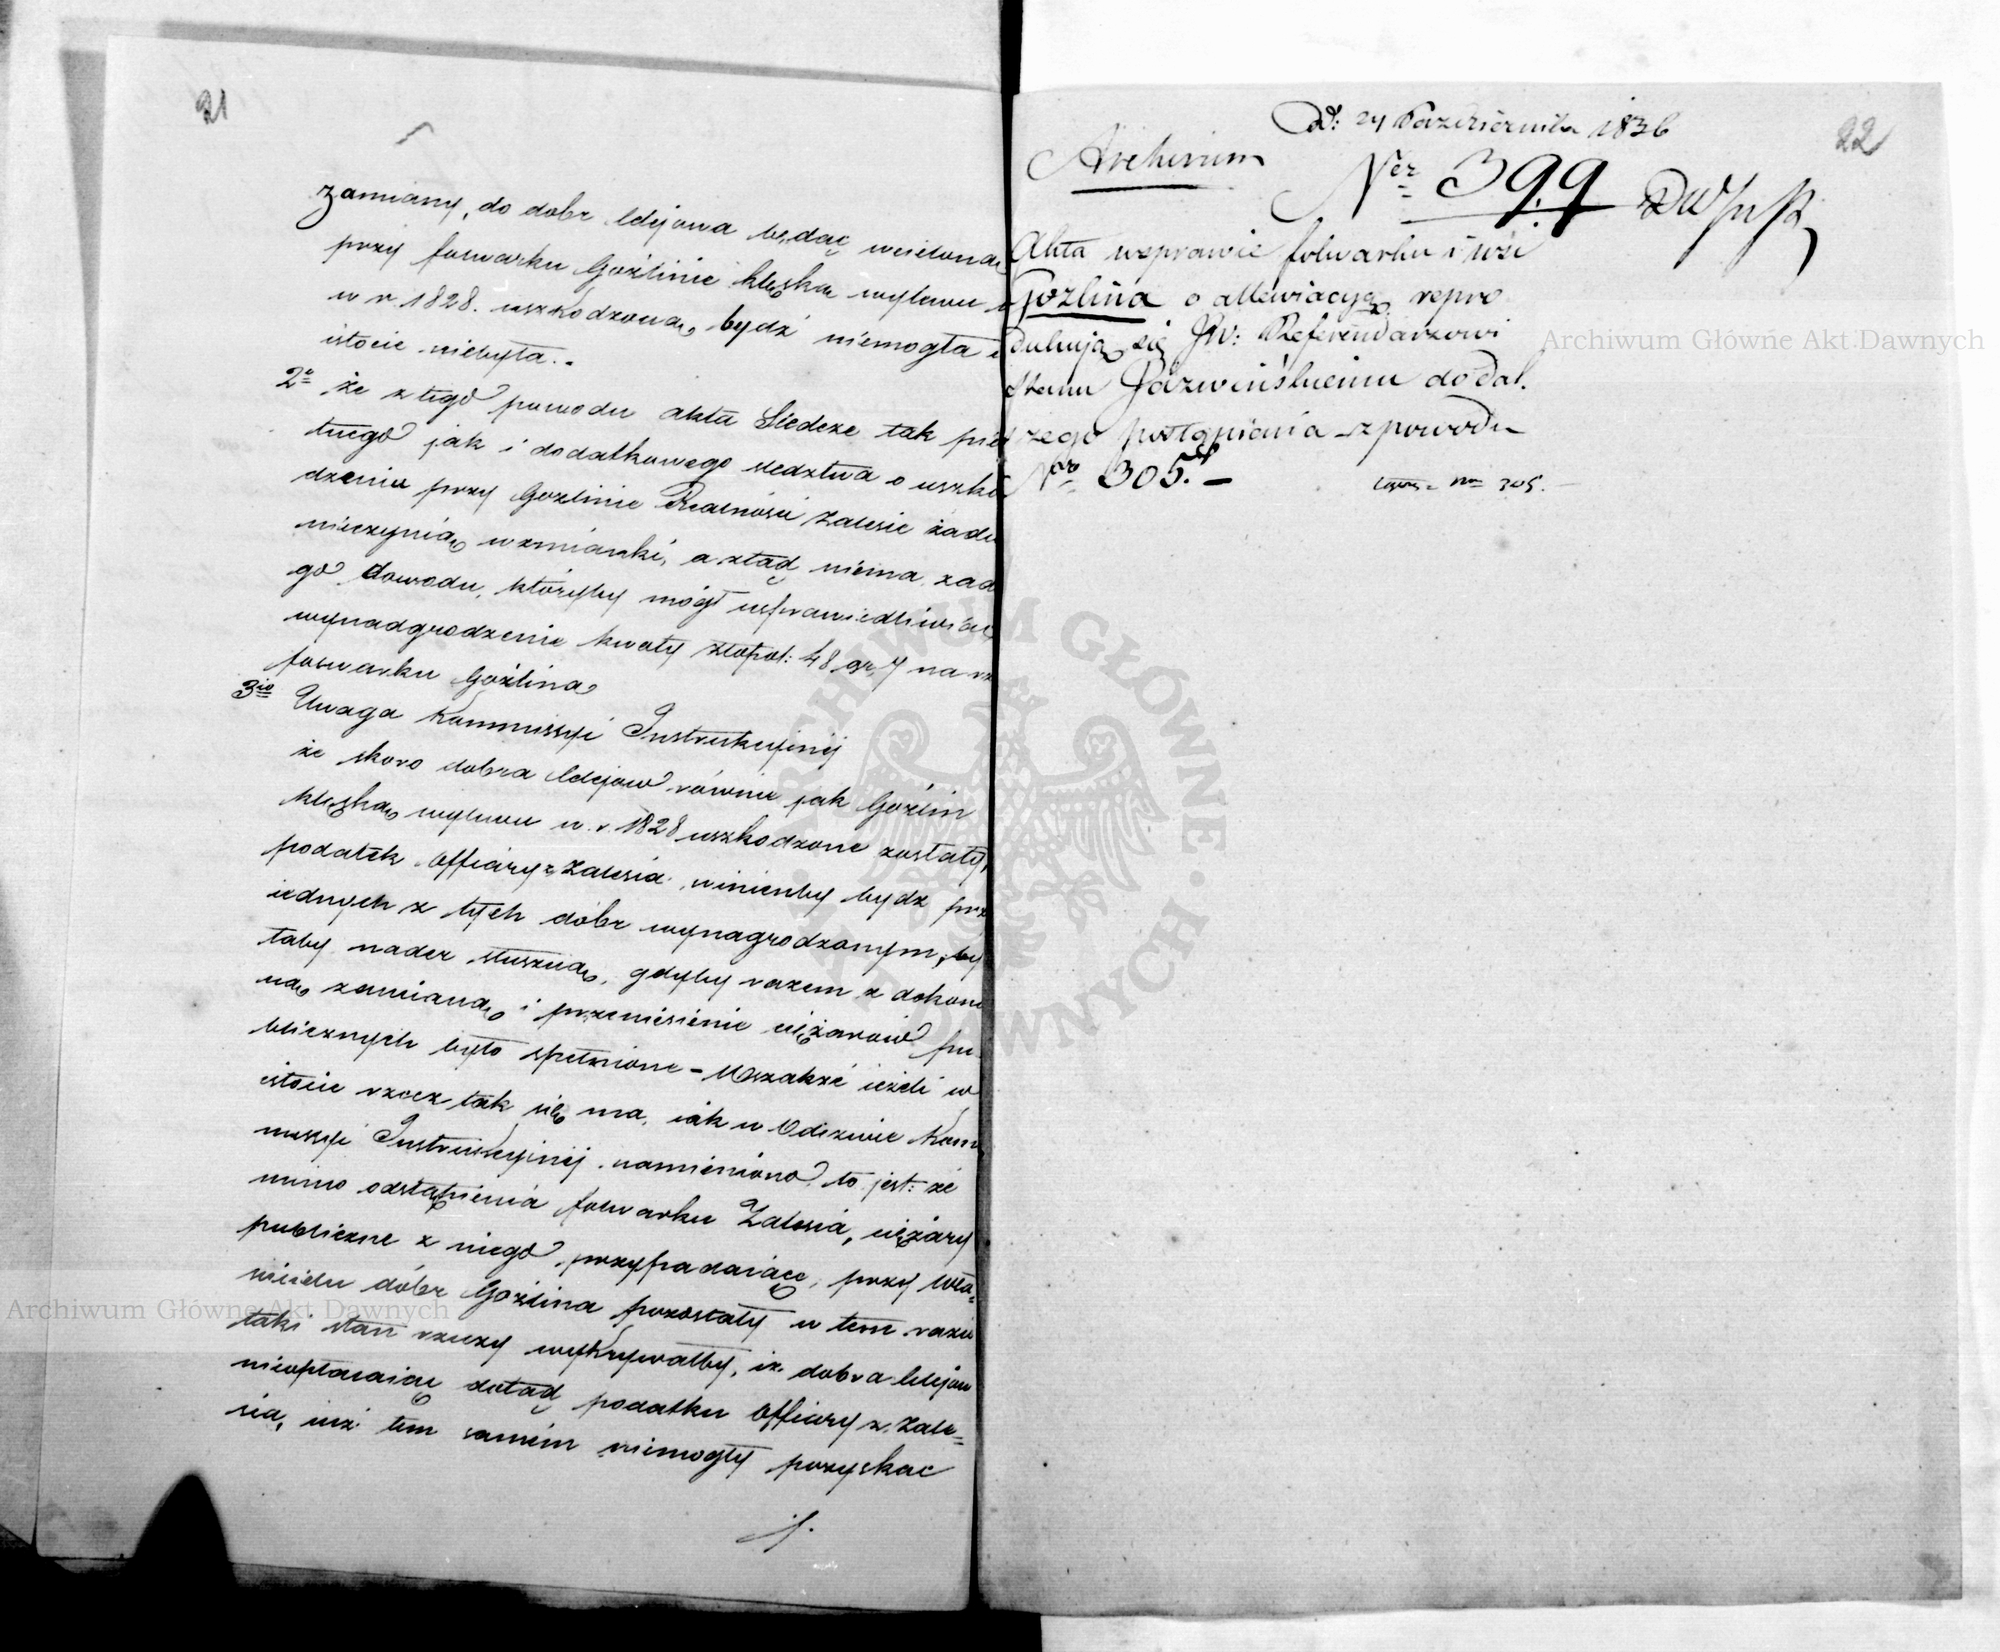 21
zamiany, do dobr bdyowa będąc wcielona
przy folwarku Goźlinie klęską wylewu
w r. 1828. uszkodzoną, bydź niemogła i
istocie niebyła.-
2e że z tego powodu akta Sledcze tak pier
tnego jak i dodatkowego sledztwa o uszko
dzeniu przy Gozlinie Realności Zalesie żadn
nieczynią wzmianki, a ztąd niema żad
go dowodu, któryby mógł usprawiedliwiać
wynadgrodzenie kwoty złopol: 48 gr, 7 na rz
folwarku Goźlina
3io Uwaga Kommissyi Instrukcyinéj
że skoro dobra równie jak Goźlin
klęską wylewu w. r. 1828 uszkodzone zostały,
podatek Offiary z Zalesia winienby bydz prz
iednych z tych dóbr wynagrodzonym, by
łaby nader słuszną, gdyby razem z dokona
ną zamianą i przeniesienie ciężarów pu-
blicznych było spełnione - Wszakże ieżeli w
istocie rzecz tak się ma, iak w Odezwie Kom
missyi Instrukcyinéj namieniono to jest: że
mimo odstąpienia folwarku Zalesia, ciężary
publiczne z niego przypadaiące, przy Wła-
ścicielu dóbr Goźlina pozostały w tem razie
taki stan rzeczy wykrywałby, iż dobra
nieopłacaiąc dotąd podatku Offiary z Zale=
sia, iuż tem samém niemogły pozyskac
./.
22
D: 24 Października 1836
Archivum
Ner 399
Akta wsprawie folwarku i wsi
Gozlina o allewiacyą repro
dukują się JW: Referendarzowi
Stanu do dal.
szego postąpienia z powodu
Nro 305. -
Nro 305. -
Archiwum Główne Akt Dawnych
Archiwum Główne Akt Dawnych
ARCHIWUM GŁÓWNE AKT DAWNYCH